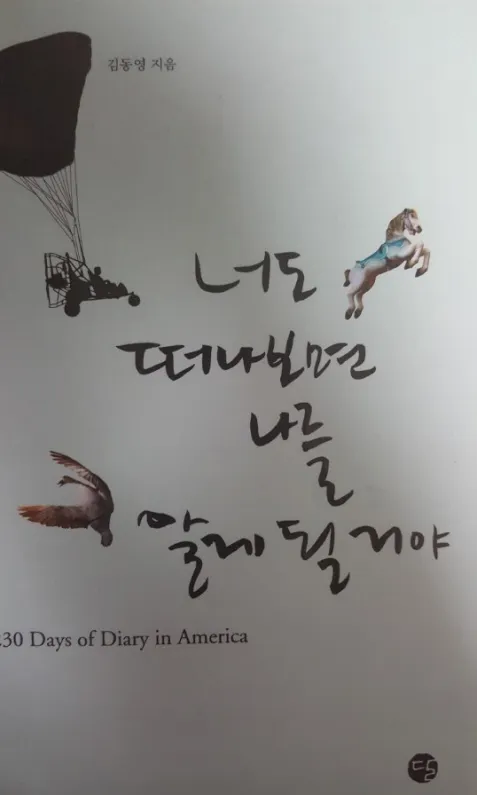 김동영 지음
너도
떠나보면
나를
알게 될 거야
30 Days of Diary in America
달